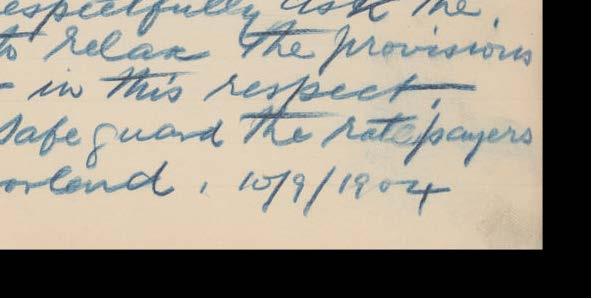 espectfully ask the
to relax the provisions
- in this respect,
safeguard the ratepayers
orland. 10/9/1904